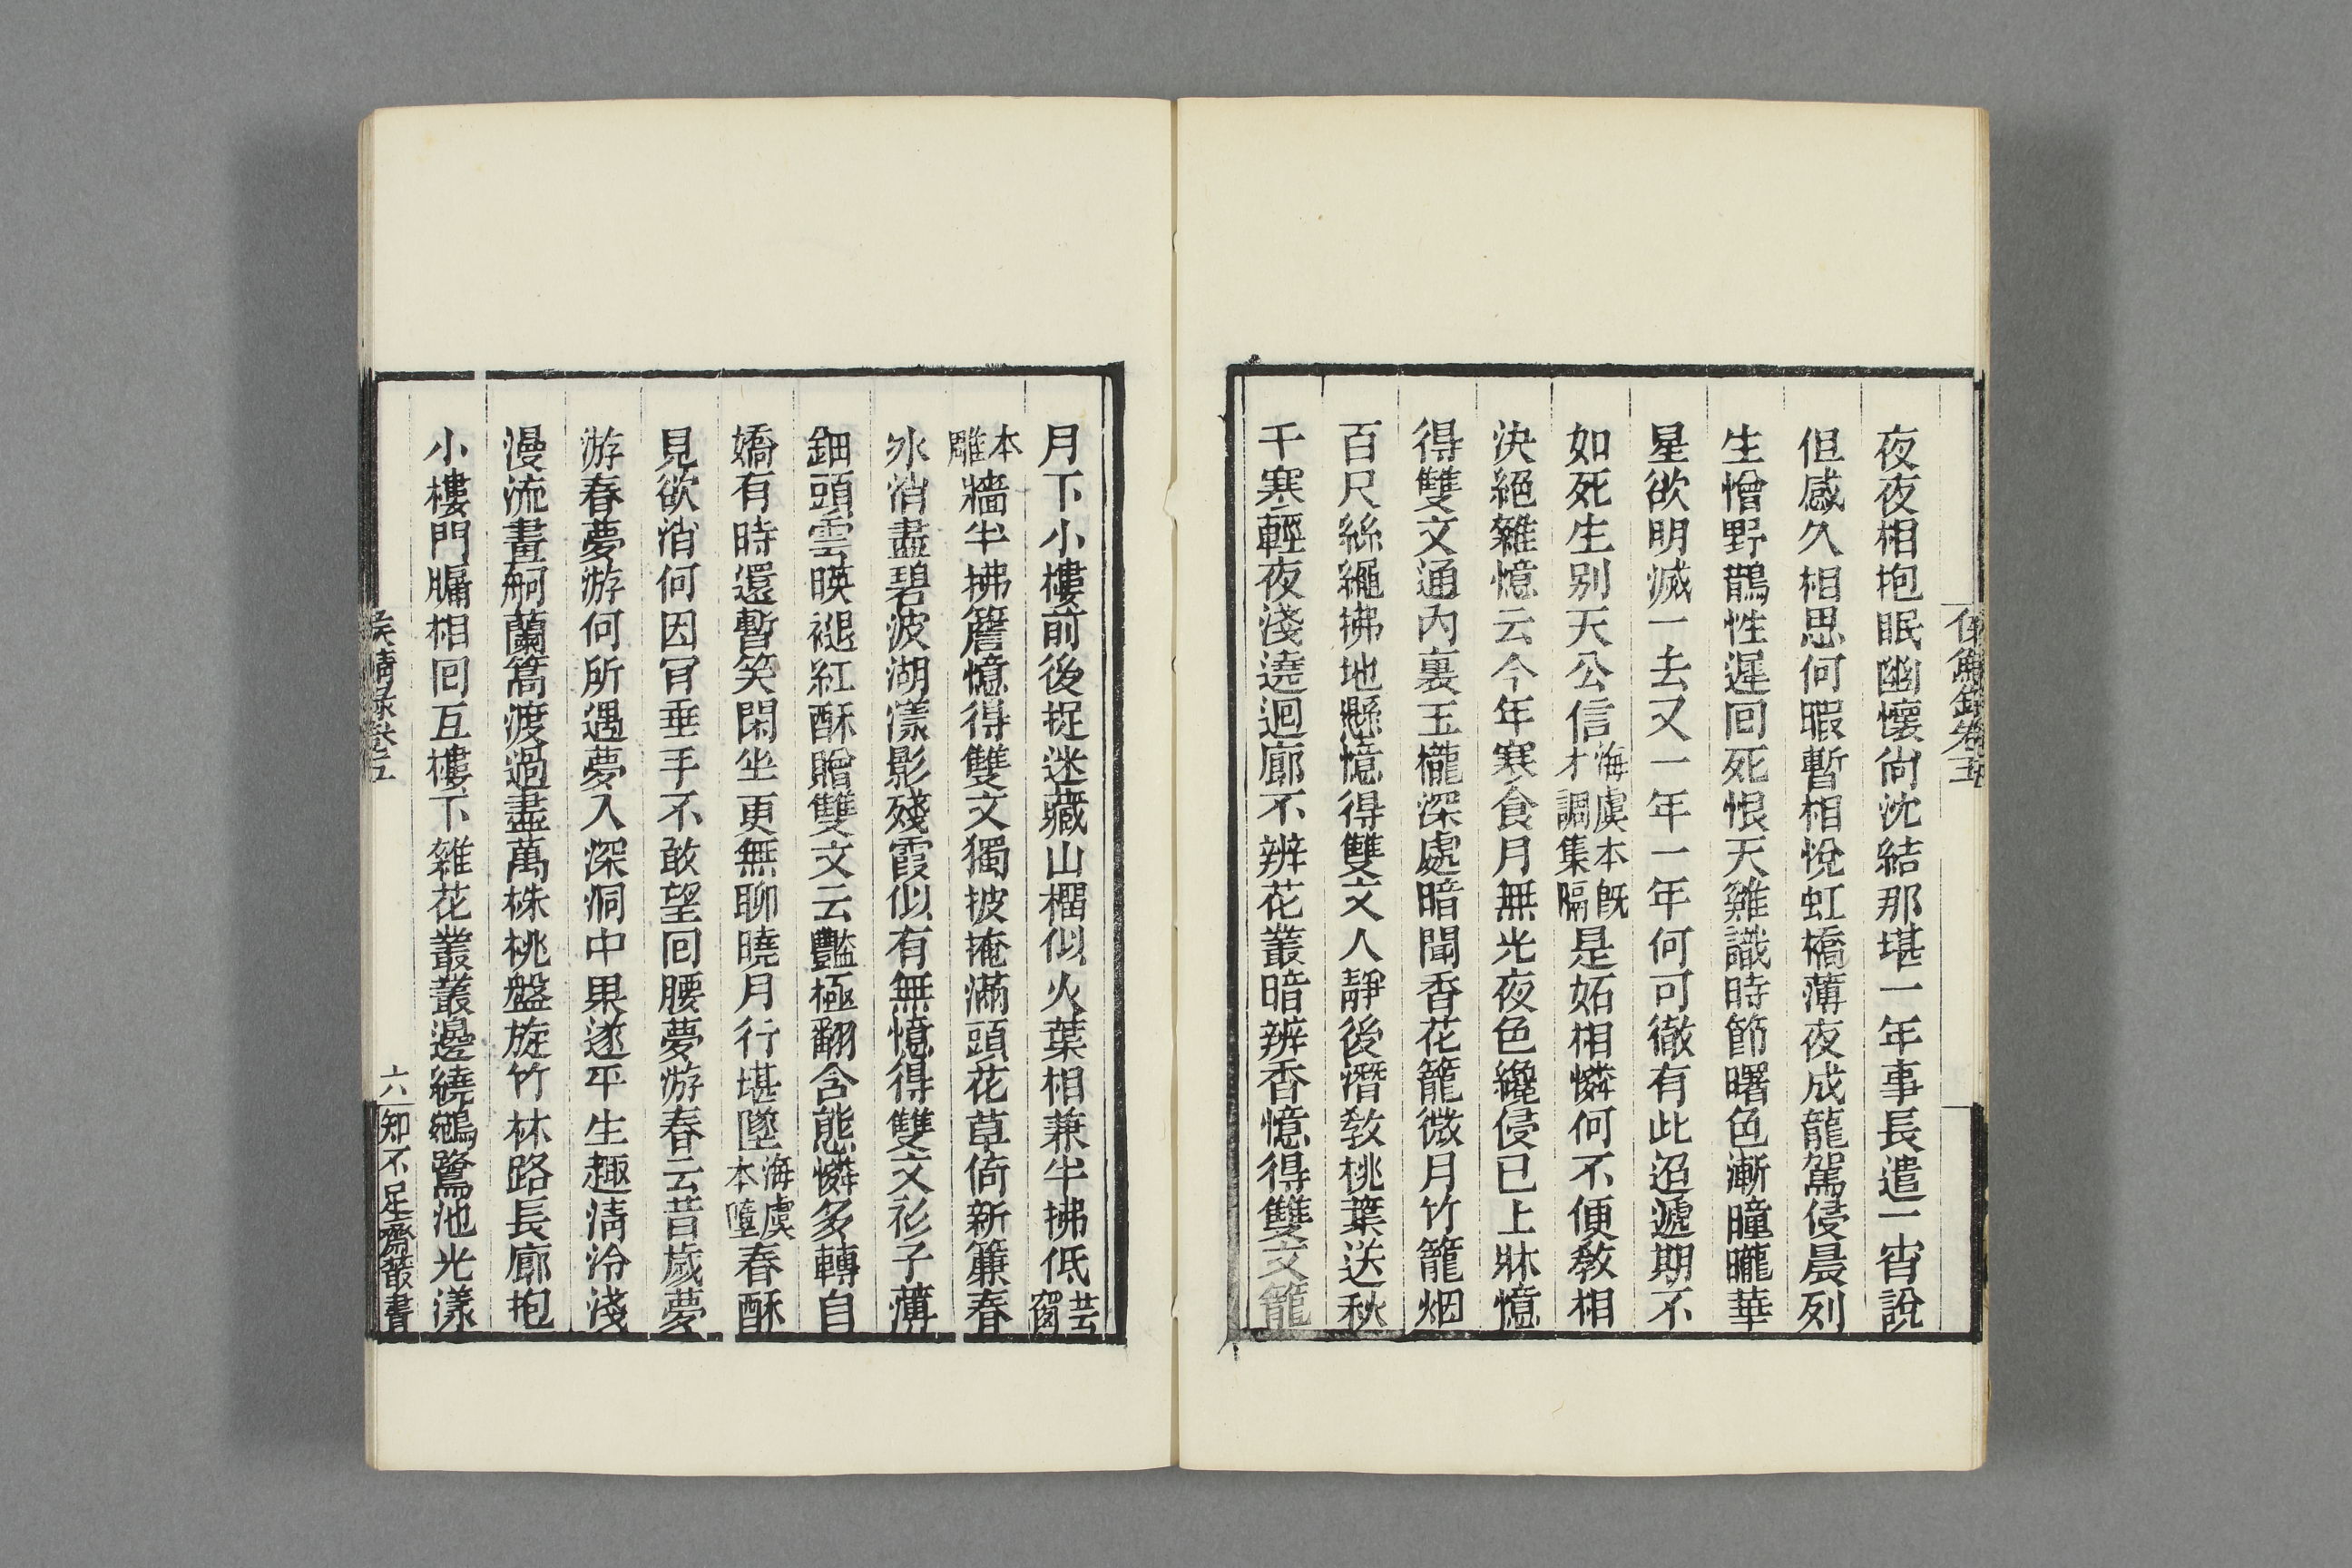 夜夜相抱眠幽懷尙沈結那堪一年事長遣一宵說
但感久相思何暇暫相悅虹橋薄夜成龍駕侵晨列
生憎野鵲性遲回死恨天雞識時節曙色漸曈曨華
星欲明滅一去又一年一年何可徹有此迢遞期不
如死生别天公信海虞本旣才調集隔是妬相憐何不便敎相
決絕雜憶云今年寒食月無光夜色纔侵已上牀憶
得雙文通內裏玉櫳深處暗聞香花籠微月竹籠烟
百尺絲繩拂地懸憶得雙文人靜後潛敎桃葉送秋
千寒輕夜淺遶迴廊不辨花叢暗辨香憶得雙文籠
月下小樓前後捉迷藏山榴似火葉相兼半拂低芸窗
本雕牆半拂簷憶得雙文獨披掩滿頭花草倚新簾春
冰消盡碧波湖漾影殘霞似有無憶得雙文衫子薄
鈿頭雲暎褪紅酥贈雙文云豔極翻含態憐多轉自
嬌有時還暫笑閑坐更無聊曉月行堪墜海虞本墮春酥
見欲消何因肎垂手不敢望回腰夢游春云昔歲夢
游春夢游何所遇夢入深洞中果遂平生趣淸泠淺
漫流畫舸蘭篙渡過盡萬株桃盤旋竹林路長廊抱
小樓門牖相回互樓下雜花叢叢邊繞鵷鷺池光漾
侯鯖錄卷五
六
知不足齋叢書